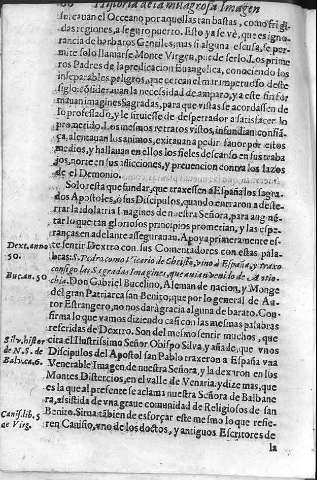 Historia de la milagrosa Imagen
surcauan el Occeano por aquellas tan bastas, como frigi-
das regiones, a seguro puerto. Esto ya se vè, que es igno-
rancia de barbaros Gentiles; mas si alguna escusa, se per-
mite, solo llamarse Monte Virgen, puede serlo. Los prime
ros Padres de la predicacion Euangelica, conociendo los
inseparables peligros, que cercan el mar impetuoso deste
siglo, considerauan la necessidad de amparo, y a este fin for
mauan imagines Sagradas, para que vistas se acordassen de
lo professado, y le siruiesse de despertador a satisfacer lo
prometido. Los mesmos retratos vistos, infundian confiã
ça, alentauan los animos, excitauan a pedir fauor por estos
medios, y hallauan en ellos los fieles descanso en sus traba
jos, norte en sus aflicciones, y preuencion contra los lazos
de el Demonio.
Solo resta que fundar, que traxessen à España los Sagra-
dos Apostoles, ò sus Discipulos, quando entraron a deste-
rrar la idolatria Imagines de nuestra Señora, para augmē-
tar lo que tan gloriosos principios prometian, y las espe-
rançasen adelante asseguran. Apoya primeramente es-
Dext. anno
te sentir Dextro con sus Comentadores con estas pala-
50.
bras: S. Pedro como Vicario de Christo, vino à España, y traxo
consigo las Sagradas Imagines, que auian venido de Antio-
Bucan. 50
chia. Don Gabriel Bucelino, Aleman de nacion, y Monge
del gran Patriarca san Benito; que por lo general de Au-
tor Estrangero, no nos darà gracia alguna de barato. Con-
firma lo que vamos diziendo casi con las mesmas palabras
referidas de Dextro. Son del mesmo sentir muchos, que
Silv. histor
cita el Ilustrissimo Señor Obispo Silva, y añade, que vnos
de N. S. de
Discipulos del Apostol san Pablo traxeron a España vna
Balv. c. 6.
Venerable Imagen de nuestra Señora, y la dexaron en los
Montes Distercios, en el valle de Venaria, y dize mas, que
es la que al presente se aclama nuestra Señora de Balbane
ra, assistida de vna graue comunidad de Religiosos de san
Canis. lib. 5
Benito. Situa tābien de esforçar este mesmo lo que refie-
de Virg.
ren Canisio, vno de los doctos, y antiguos Escritores de
la